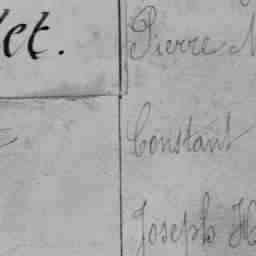 let.
Pierre
Constant
Joseph H